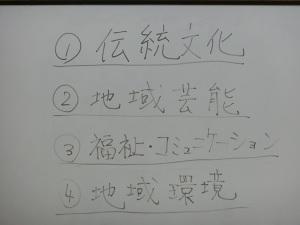 ① 伝統文化
② 地域芸能
③ 福祉・コミュニケーション
④ 地域環境